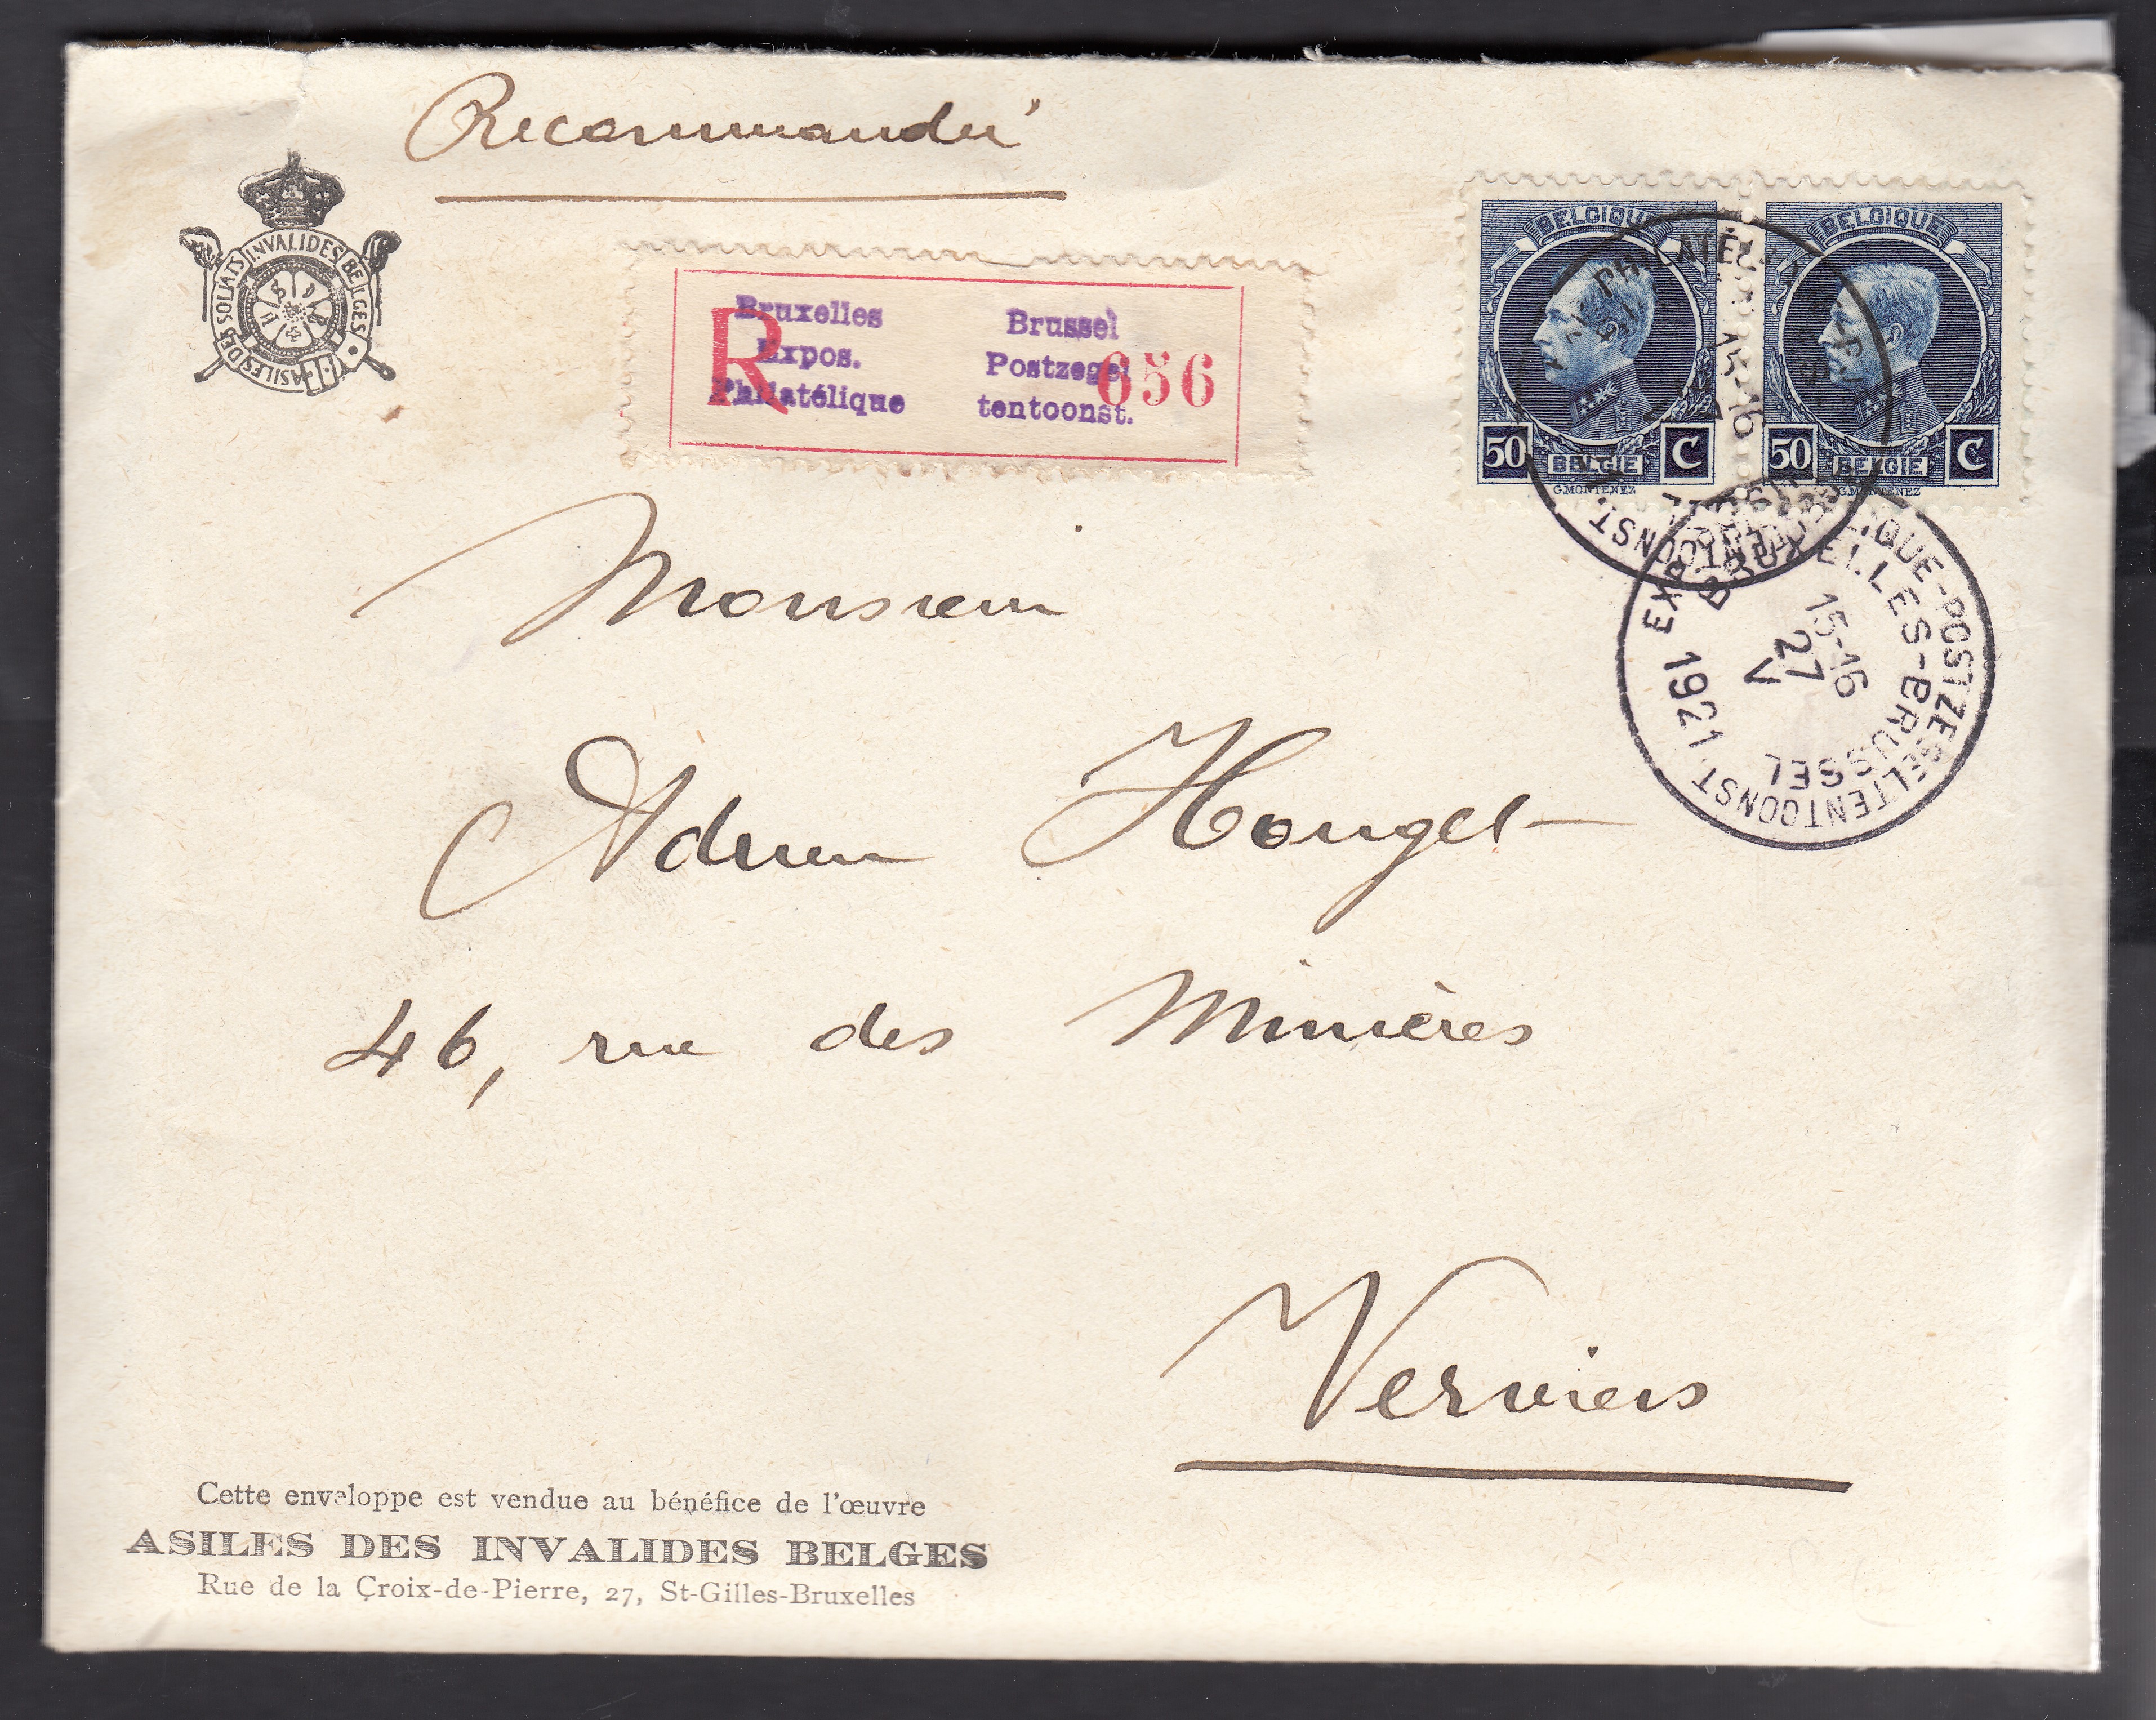 Recommandée
ASILES DES SOLDATS INVALIDES BELGES
Bruxelles
Expos.
Philatélique
Brussel
Postzegel
tentoonst.
R
656
BELGIQUE
50 BELGIË C
G.MONTENEZ
BELGIQUE
50 BELGIË C
G.MONTENEZ
15-16
TOONST.
BRUXELLES-BRUSSEL
15-16
27
V
EXP. QUE-POSTZEGELTENTOONST.
1921
Monsieur
Adrien Houget
46, rue des Minières
Verviers
Cette enveloppe est vendue au bénéfice de l'œuvre
ASILES DES INVALIDES BELGES
Rue de la Croix-de-Pierre, 27, St-Gilles-Bruxelles